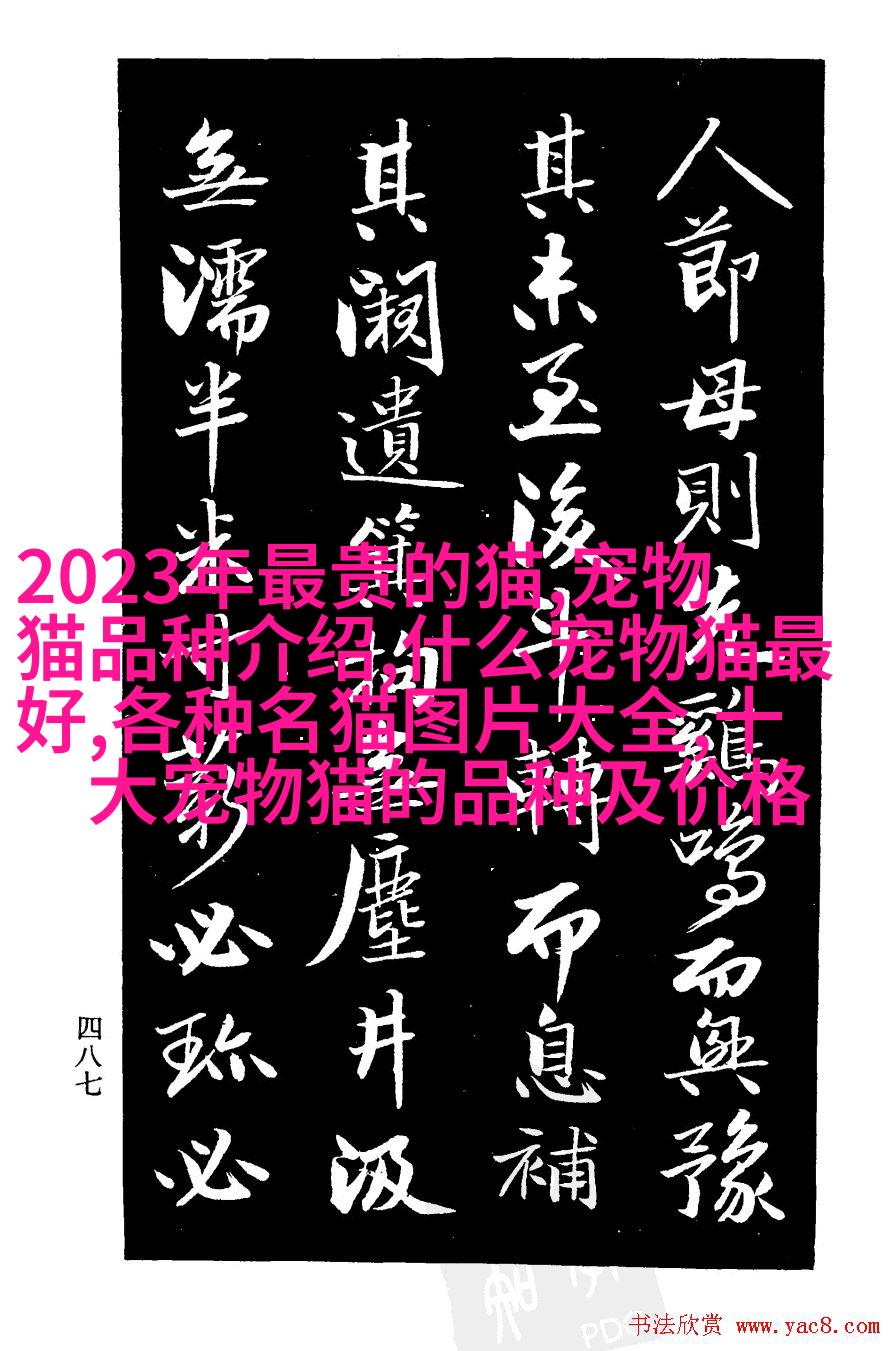 人節母則先雞鳴而興豫
其未至後斗轉而息補
其闕遺塵井汲
無濡半米寸薪必珎必
2023年最贵的猫,宠物
猫品种介绍,什么宠物猫最
好,各种名猫图片大全,十
大宠物猫的品种及价格
四八七
书法欣赏 www.yac8.com